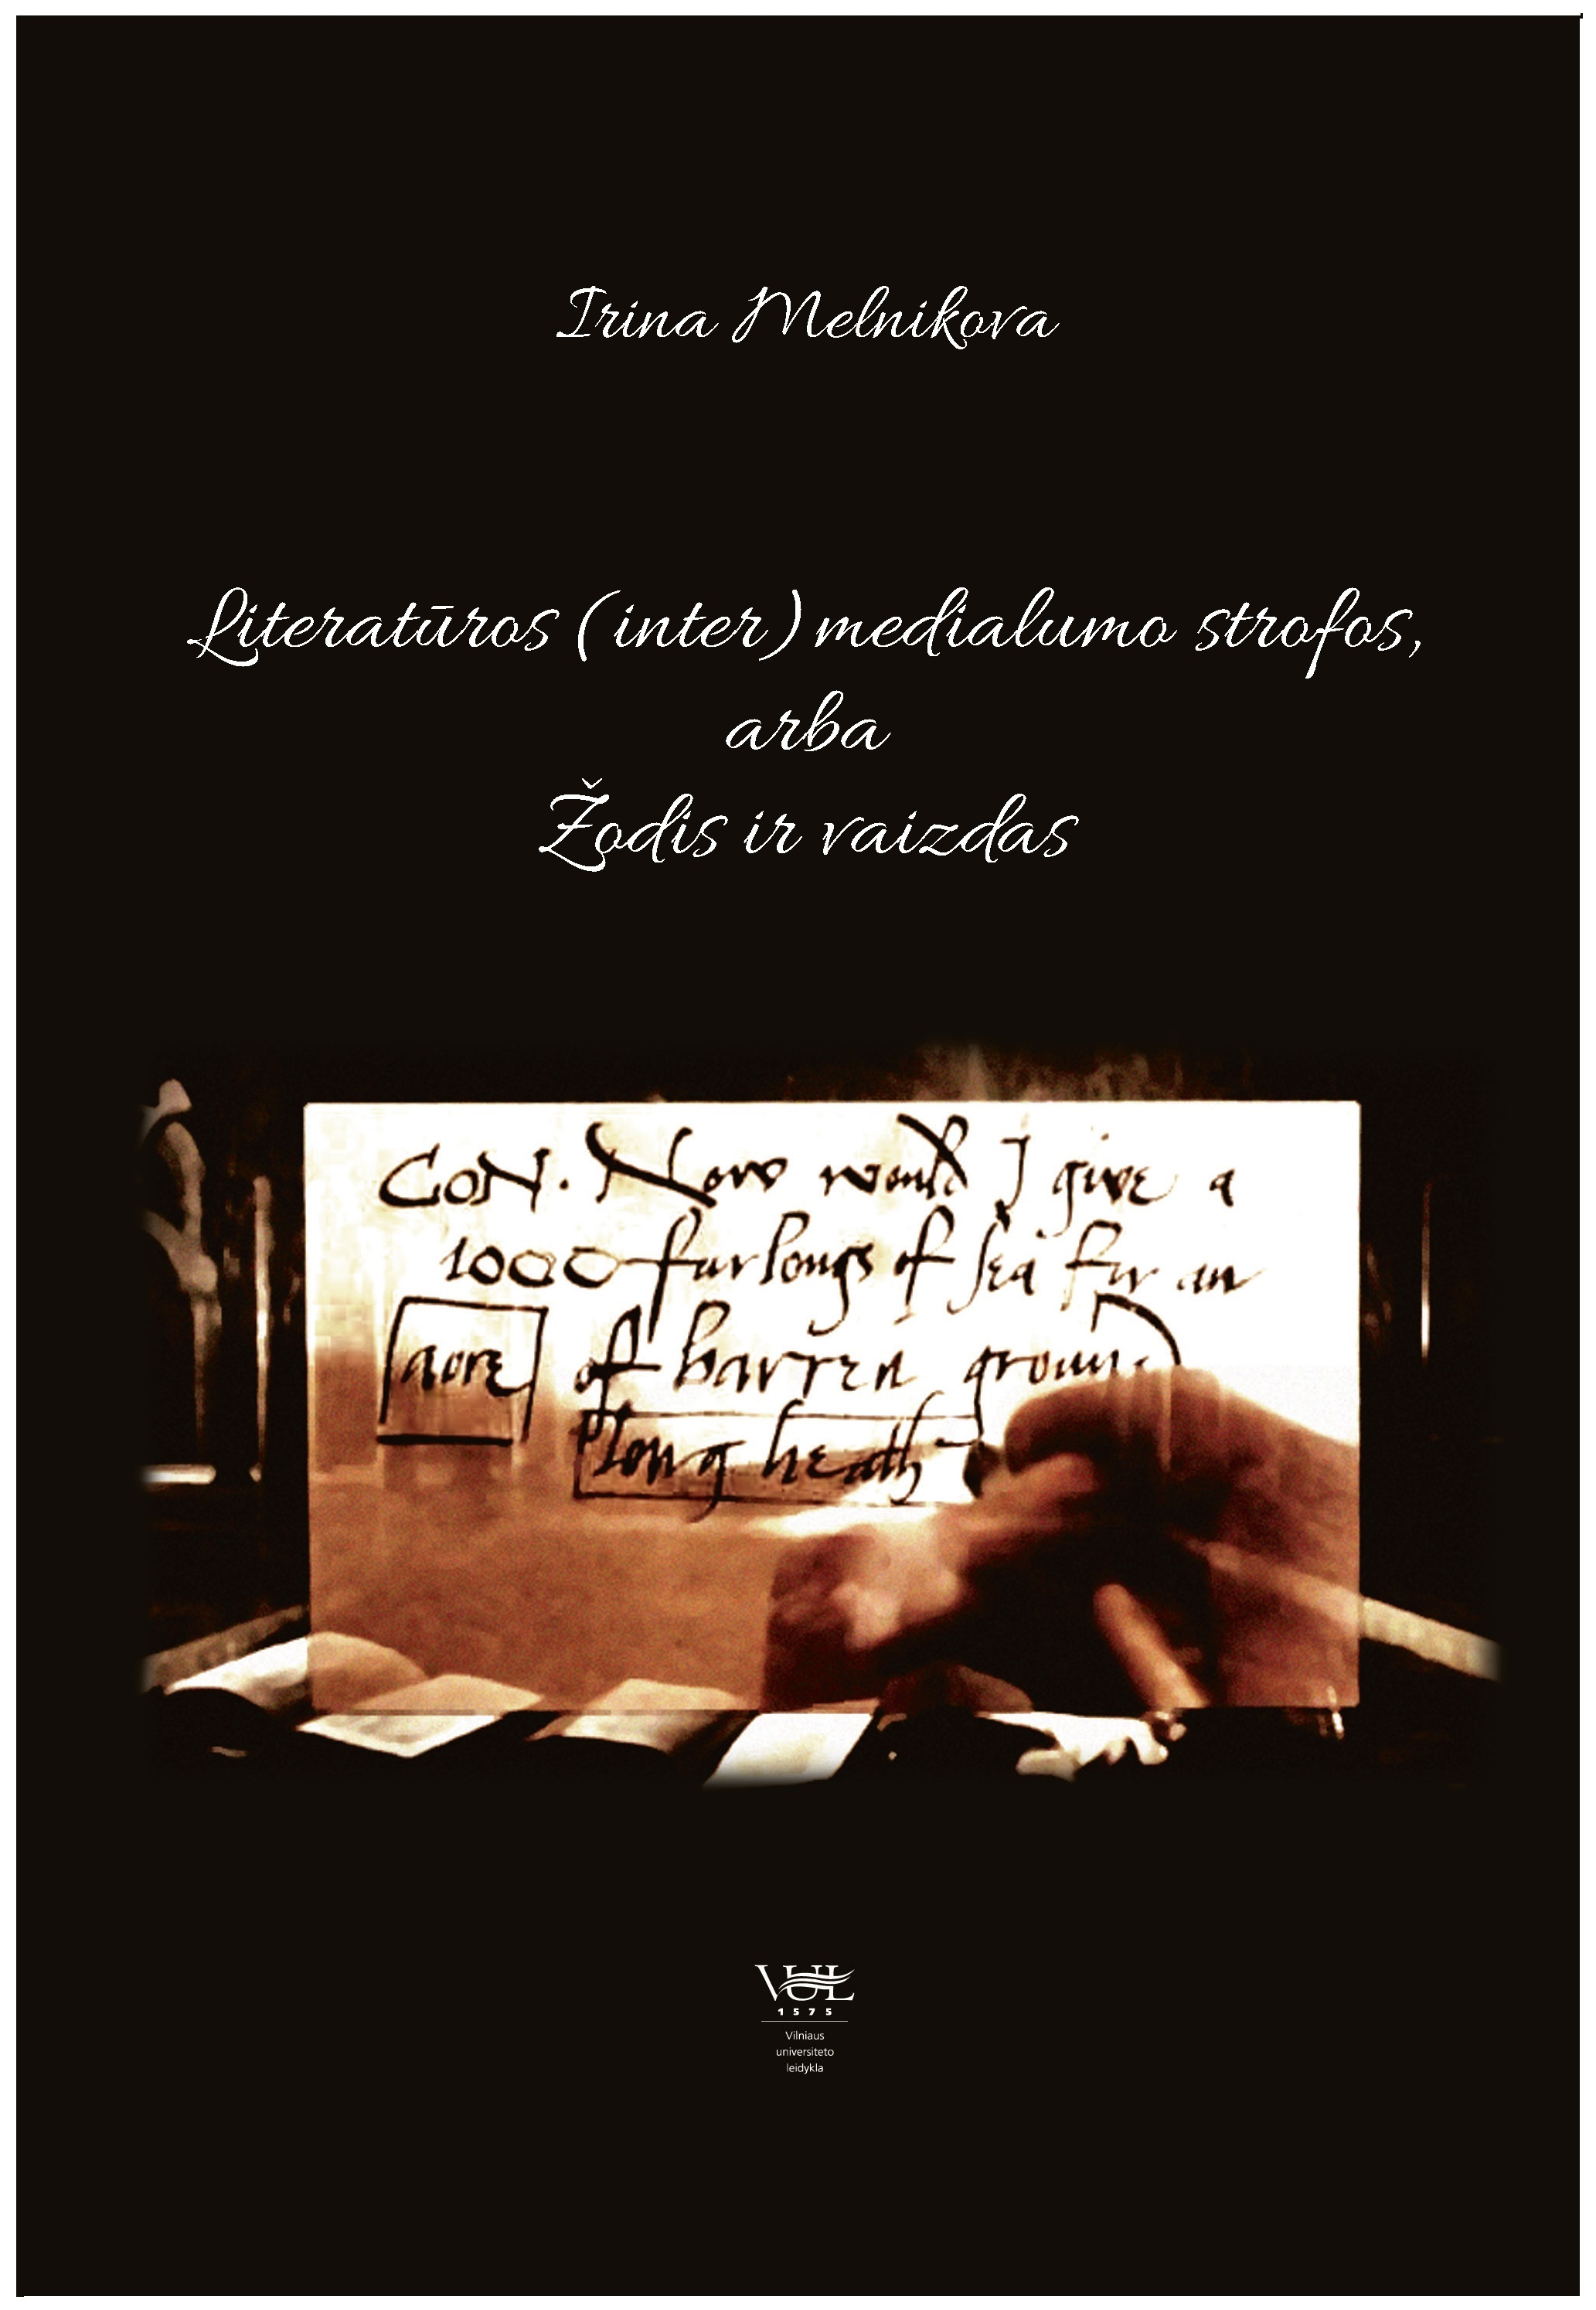 Irina Melnikova
Literatūros (inter)medialumo strofos,
arba
Žodis ir vaizdas
CON. Now would I give a
1000 furlongs of sea for an
acre of barren ground
long heath
VUL
1575
Vilniaus
universiteto
leidykla